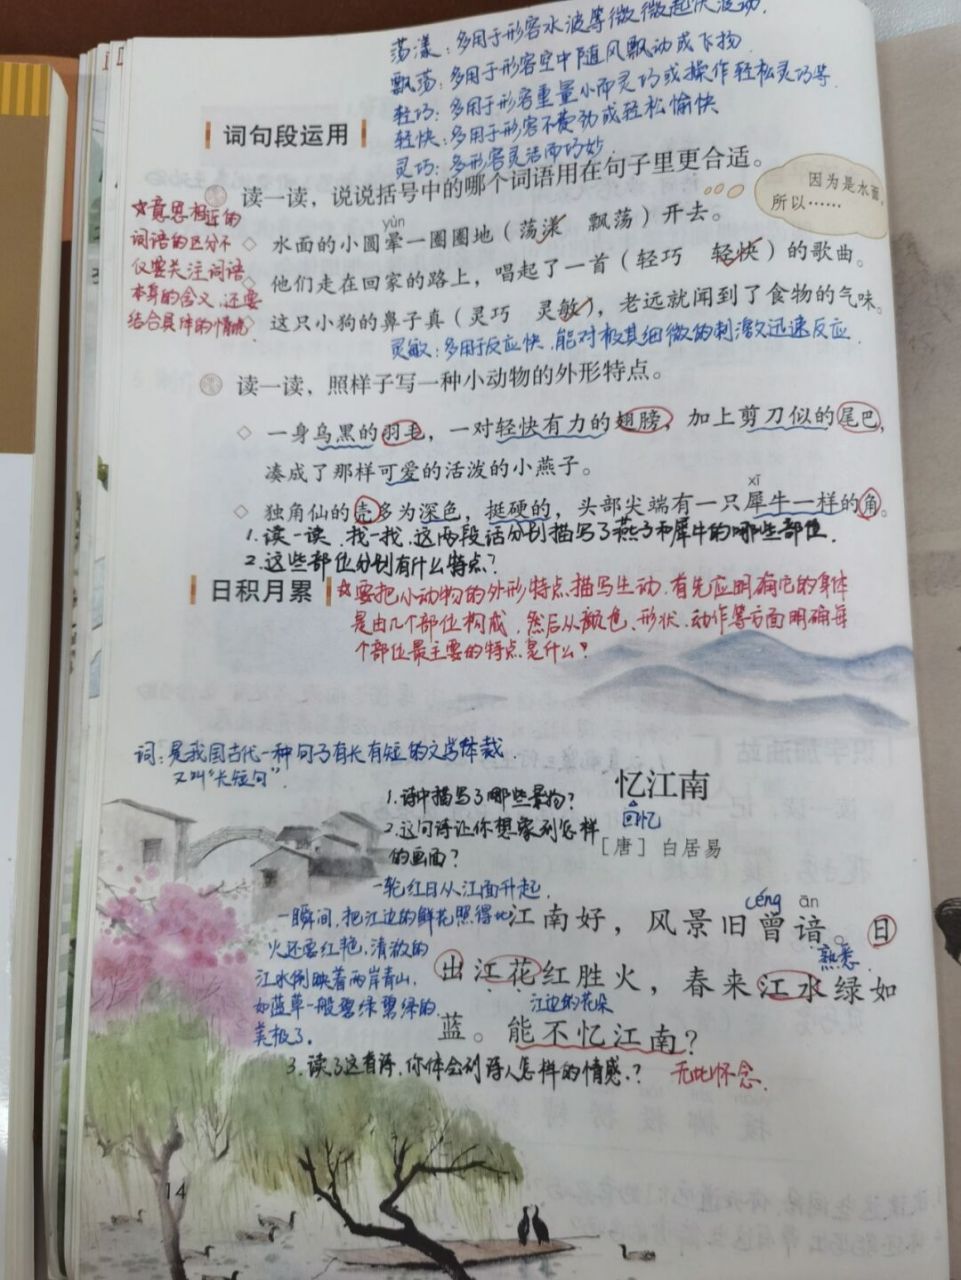 荡漾：多用于形容水波等微微起伏波动.
飘荡：多用于形容空中随风飘动或飞扬
轻巧：多用于形容重量小而灵巧或操作轻松灵巧等
轻快：多用于形容不费劲或轻松愉快
灵巧：多形容灵活而巧妙
词句段运用
读一读，说说括号中的哪个词语用在句子里更合适。
因为是水面，
所以……
☆意思相近的
词语的区分不
仅要关注词语
本身的含义,还要
结合具体的情境
yùn
水面的小圆晕一圈圈地（荡漾 飘荡）开去。
他们走在回家的路上，唱起了一首（轻巧 轻快）的歌曲。
这只小狗的鼻子真（灵巧 灵敏），老远就闻到了食物的气味。
灵敏：多用于反应快,能对极其细微的刺激迅速反应
读一读，照样子写一种小动物的外形特点。
一身乌黑的羽毛，一对轻快有力的翅膀，加上剪刀似的尾巴，
凑成了那样可爱的活泼的小燕子。
xī
独角仙的壳多为深色，挺硬的，头部尖端有一只犀牛一样的角。
1.读一读,找一找,这两段话分别描写了燕子和犀牛的哪些部位.
2.这些部位分别有什么特点?
日积月累
☆要把小动物的外形特点描写生动,首先应明确它的身体
是由几个部位构成,然后从颜色、形状、动作等方面明确每
个部位最主要的特点是什么?
词：是我国古代一种句子有长有短的文学体裁
又叫“长短句”.
忆江南
回忆
[唐] 白居易
1.诗中描写了哪些景物?
2.这句诗让你想象到怎样
的画面?
一轮红日从江面升起,
一瞬间,把江边的鲜花照得比
火还要红艳,清澈的
江水倒映着两岸青山,
如蓝草一般碧绿碧绿的,
美极了.
céng ān
江南好，风景旧曾谙。日
熟悉
出江花红胜火，春来江水绿如
江边的花朵
蓝。能不忆江南？
3.读了这首诗,你体会到诗人怎样的情感.? 无比怀念.
14